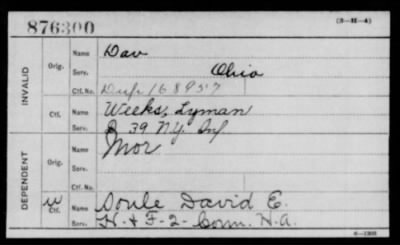 876300
(3-M-4)
INVALID
Orig.
Name Dav
Serv. Ohio
Ctf. No. Dup 168957
Ctf.
Name Weeks, Lyman
Serv. D 39 N.Y. Inf
DEPENDENT
Orig.
Name Mor
Serv.
Ctf. No.
W Ctf.
Name Soule David E.
Serv. H. & F-2- Conn. H.A.